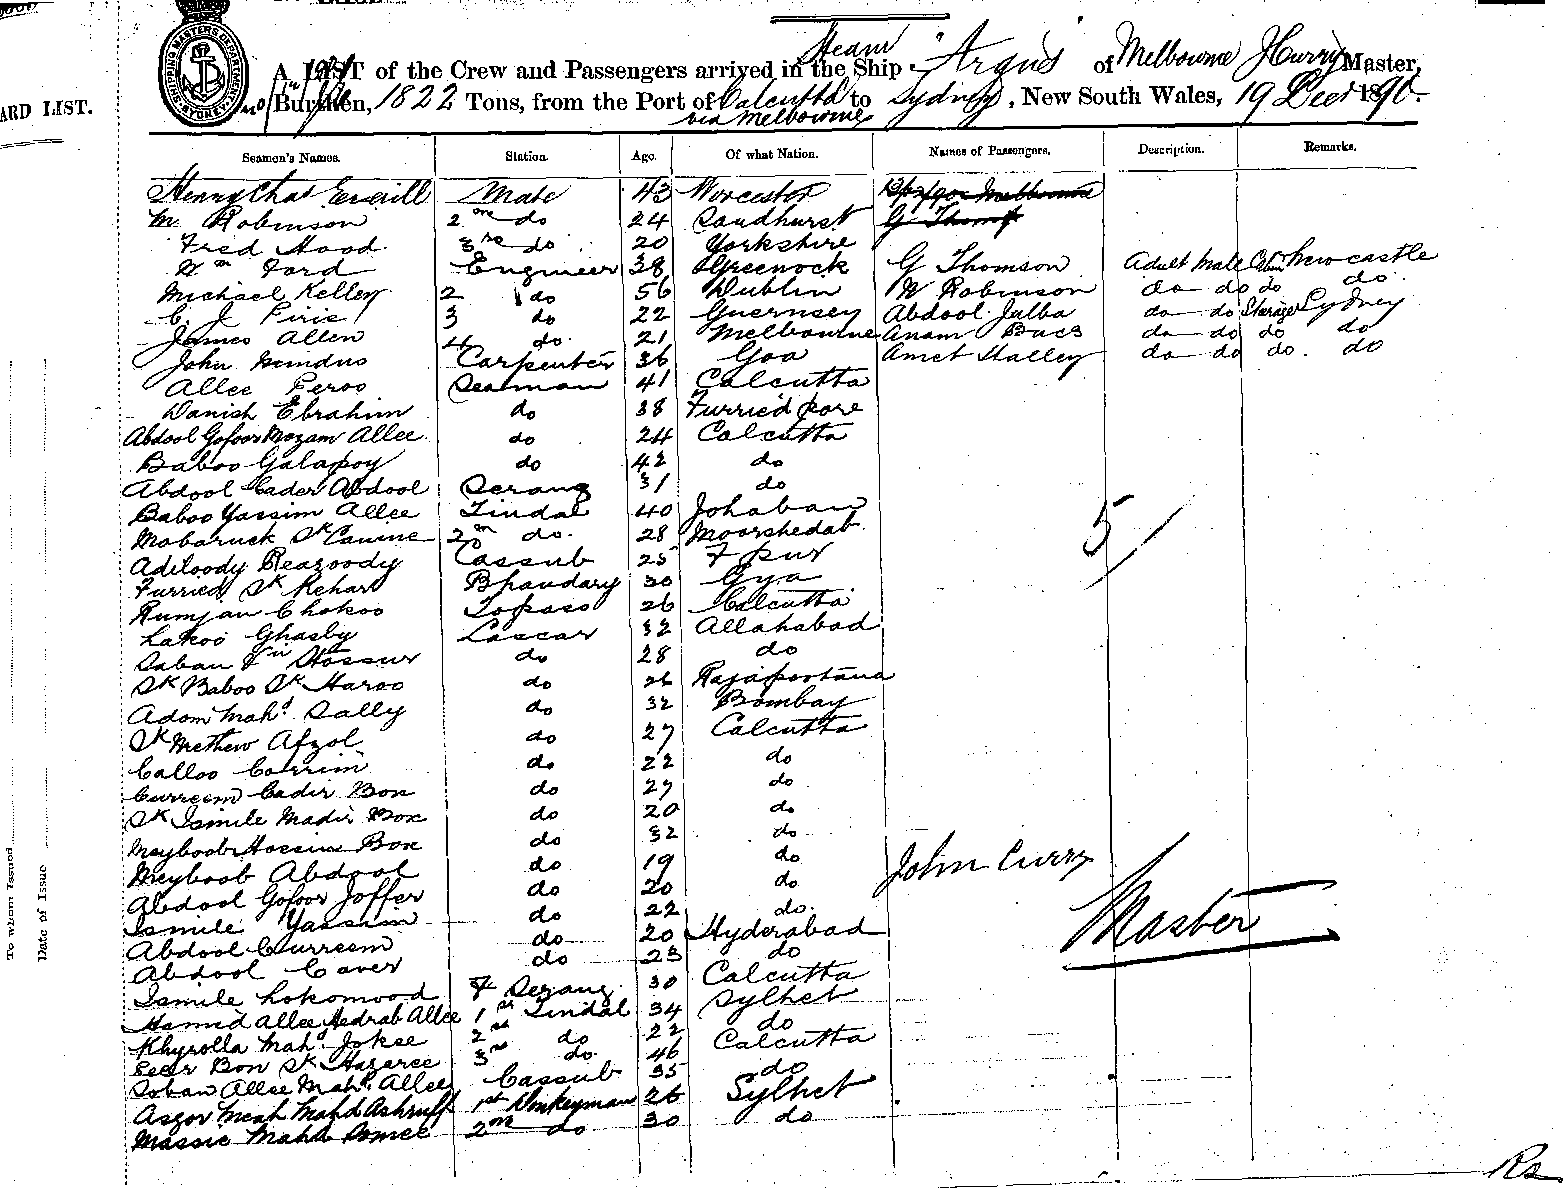 ARD LIST.
SHIPPING MASTERS DEPARTMENT SYDNEY
Steam
A LIST of the Crew and Passengers arrived in the Ship "Argus" of Melbourne J Curry Master,
Burthen, 1822 Tons, from the Port of Calcutta to Sydney, New South Wales, 19 Decr 1890.
via Melbourne
Seamen's Names. Station. Age. Of what Nation. Names of Passengers. Description. Remarks.
Henry Chas Everill Mate 43 Worcester
M. Robinson 2nd do 24 Sandhurst
Fred Hood 3rd do 20 Yorkshire
Wm Ford Engineer 38 Greenock G Thomson Adult Male Cabin Newcastle
Michael Kelley 2 do 56 Dublin W Robinson do do do do
C. J Piris 3 do 22 Guernsey Abdool Julba do do Steerage Sydney
James Allen 4 do 21 Melbourne Anam Bucs do do do do
John Mindus Carpenter 36 Goa Amet Halley do do do. do
Allee Feroo Seaman 41 Calcutta
Danish Ebrahim do 38 Furried pore
Abdool Gofoor Mozam Allee do 24 Calcutta
Baboo Galapoy do 42 do
Abdool Cader Abdool Serang 31 do
Baboo Yassim Allee Tindal 40 Johaban
Mobaruck Sk Canine 2nd do. 28 Moorshedab
Adiloody Reazoody Cassub 25 F pur
Furried Sk Rehan Bhandary 30 Gya
Rumjan Chokoo Topass 26 Calcutta
Lakoo Ghasby Lascar 32 Allahabad
Saban Hossur do 28 do
Sk Baboo Sk Haroo do 26 Rajapootana
Adom Mahd. Sally do 32 Bombay
Sk Methew Afzol do 27 Calcutta
Calloo Corrim do 22 do
Curreem Cadir Box do 27 do
Sk Ismile Madir Box do 20 do
Meyboob Hossim Box do 32 do
Meyboob Abdool do 19 do John Curry
Abdool Gofoor Joffer do 20 do
Ismile Yassim do 22 do. Master
Abdool Curreem do 20 Hyderabad
Abdool Caver do 23 do
Ismile Lokomood F Serang 30 Calcutta
Hamid Allee Hedrab Allee 1st Tindal 34 Sylhet
Khyrolla Mahd Jokse 2nd do 22 do
Seer Box Sk Hazaree 3rd do. 46 Calcutta
Soban Allee Mahd. Allee Cassub 35 do
Aszor Meah Mahd Ashruff 1st Donkeyman 26 Sylhet
Massie Mahd Somee 2nd do 30 do
5/
To whom Issued
Date of Issue
Rs